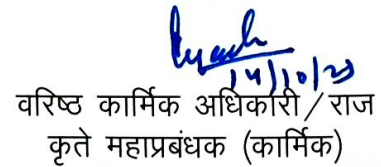 14/10/23
वरिष्ठ कार्मिक अधिकारी / राज
कृते महाप्रबंधक (कार्मिक)